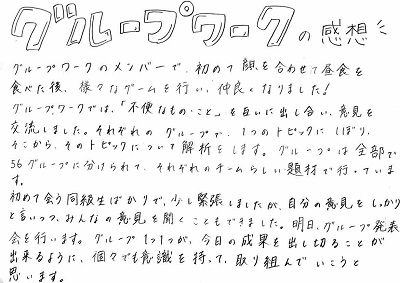 グループワークの感想
グループワークのメンバーで、初めて顔を合わせて昼食を
食べた後、様々なゲームを行い、仲良くなりました!
グループワークでは、「不便なもの・こと」を互いに出し合い、意見を
交流しました。それぞれのグループで、1つのトピックにしぼり、
そこから、そのトピックについて解析をします。グループは全部で
56グループに分けられて、それぞれのチームらしい題材で行っていま
す。
初めて会う同級生ばかりで、少し緊張しましたが、自分の意見をしっかり
と言いつつ、みんなの意見を聞くこともできました。明日、グループ発表
会を行います。グループ1つ1つが、今日の成果を出し切ることが
出来るように、個々でも意識を持って、取り組んでいこうと
思います。